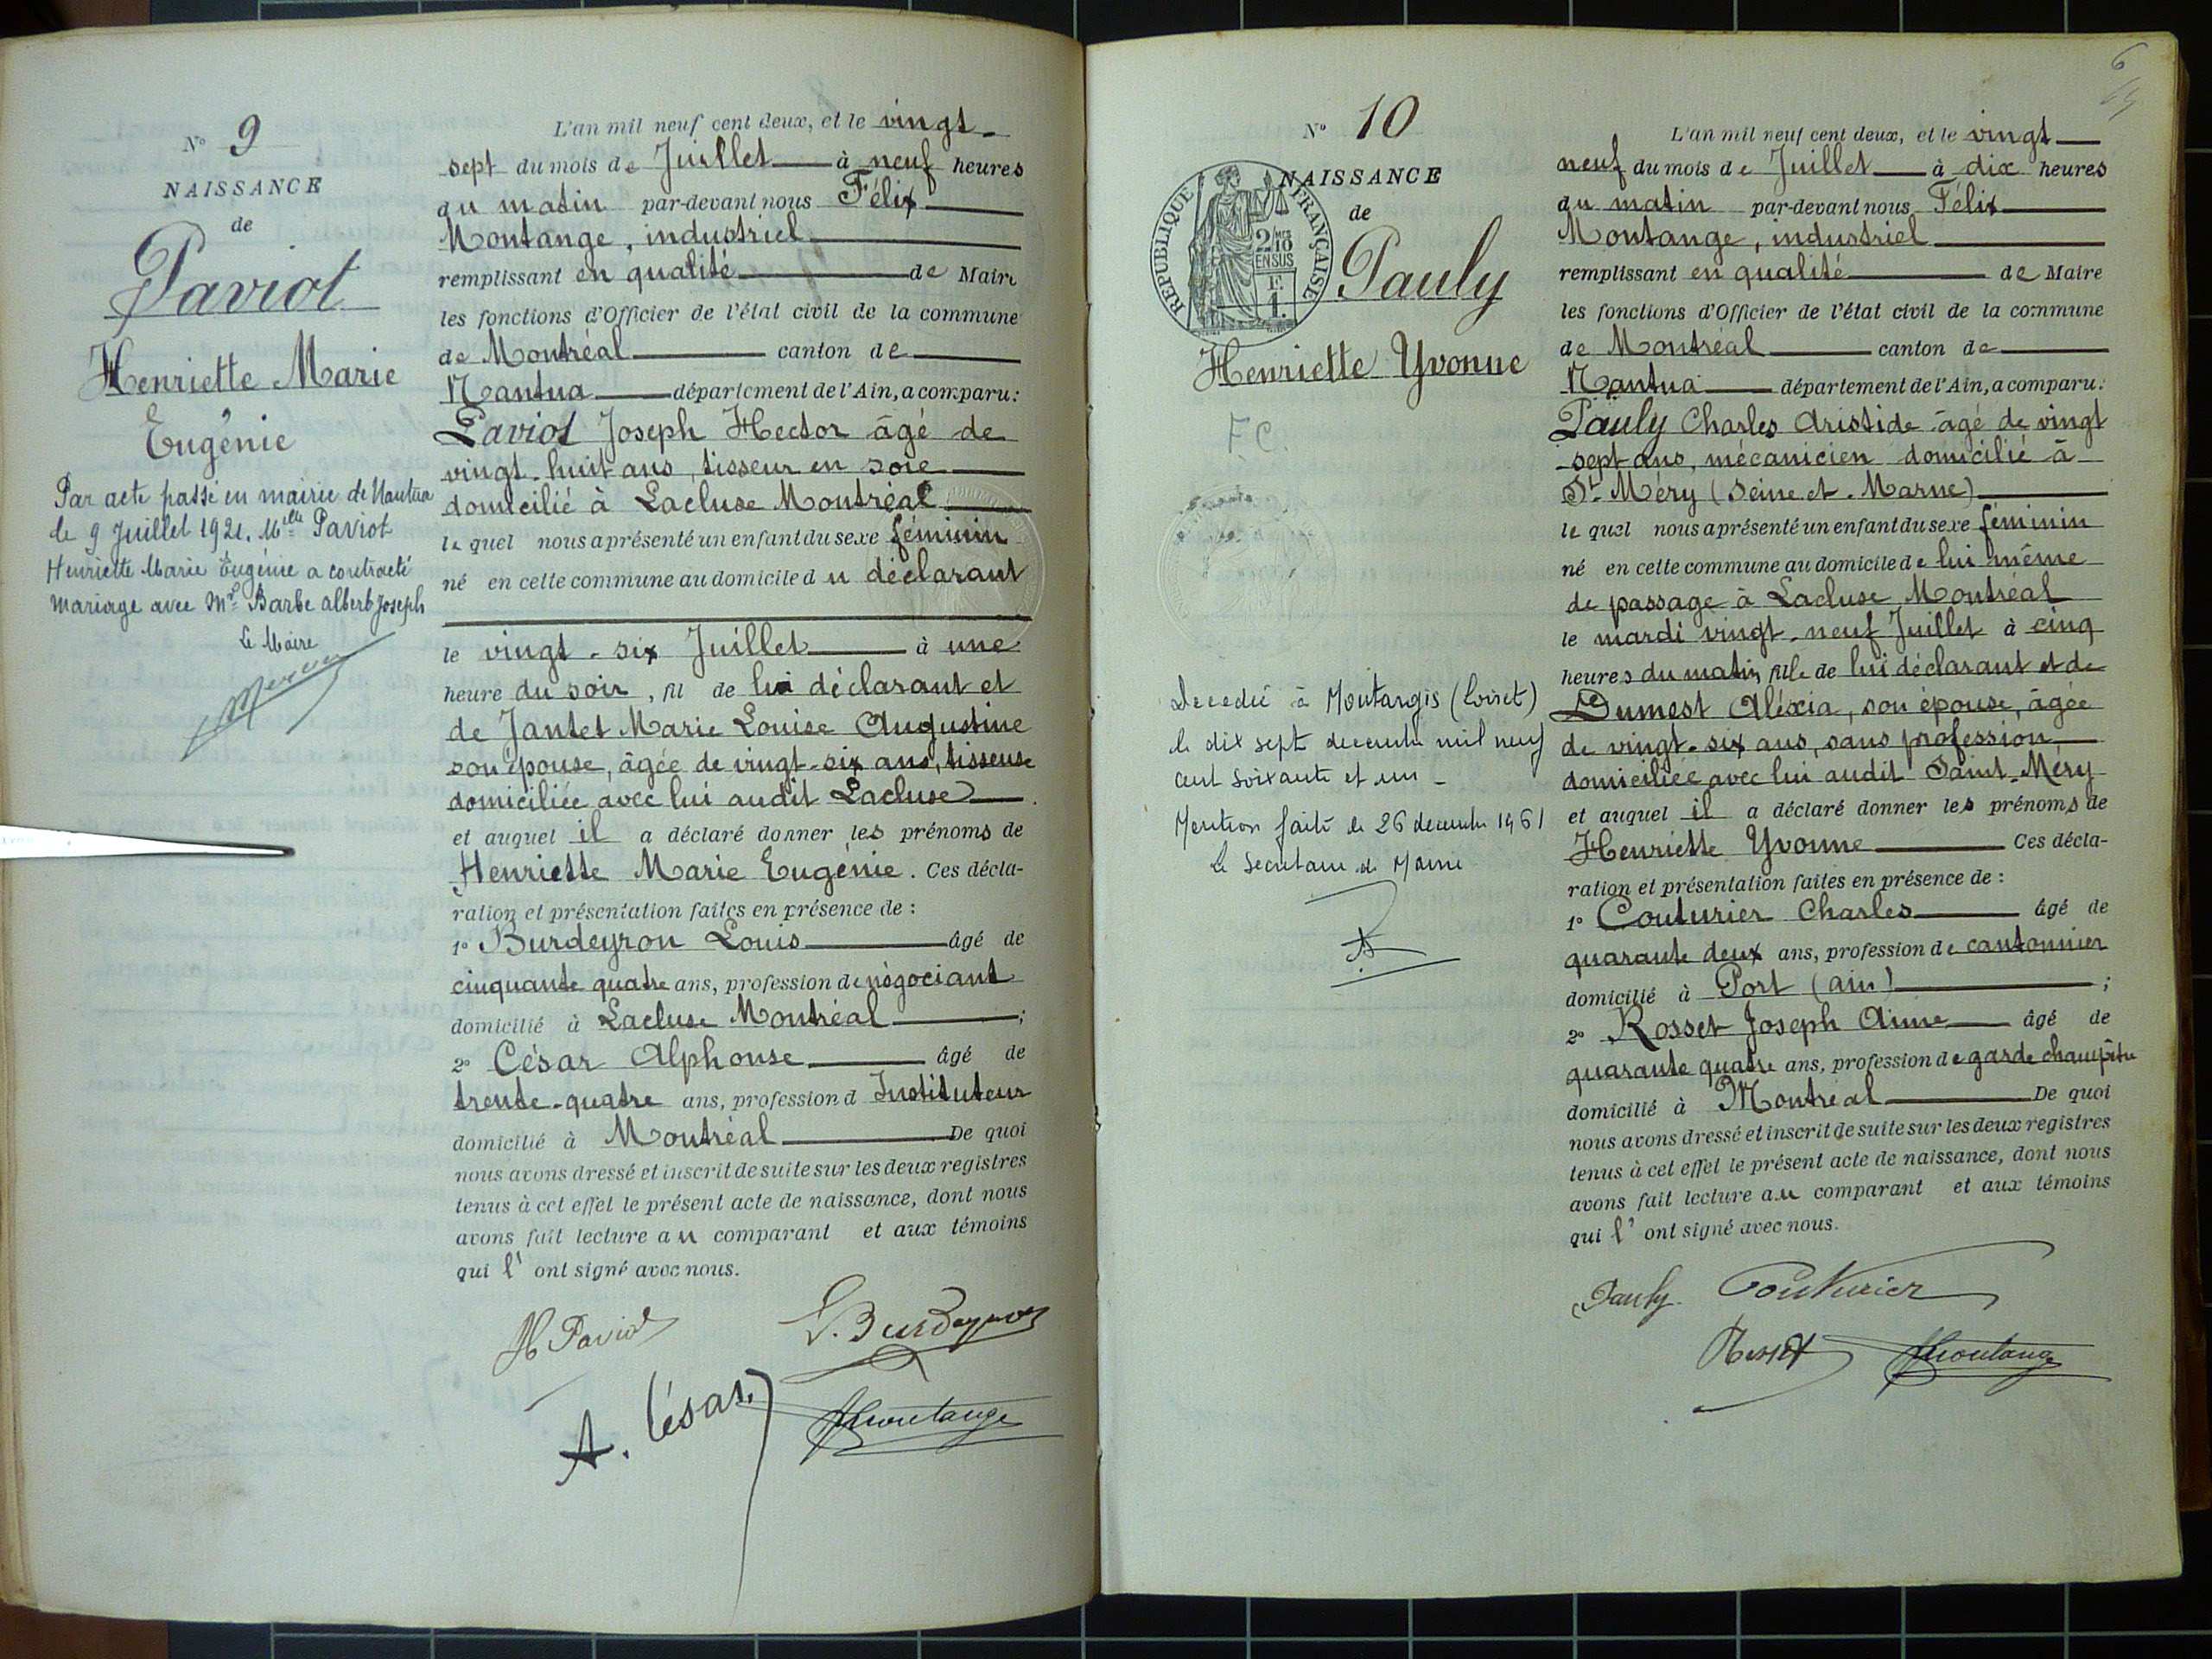 N° 9
NAISSANCE
de
Paviot
Henriette Marie
Eugénie
Par acte passé en mairie de Nantua
le 9 Juillet 1921, Mlle Paviot
Henriette Marie Eugénie a contracté
mariage avec Mr Barbe albert Joseph
Le Maire
L'an mil neuf cent deux, et le vingt-
sept du mois de Juillet à neuf heures
du matin par-devant nous Félix
Montange, industriel
remplissant en qualité de Maire
les fonctions d'Officier de l'état civil de la commune
de Montréal canton de
Nantua département de l'Ain, a comparu:
Paviot Joseph Hector âgé de
vingt-huit ans, tisseur en soie
domicilié à Lacluse Montréal
le quel nous a présenté un enfant du sexe féminin
né en cette commune au domicile du déclarant
le vingt-six Juillet à une
heure du soir, fil de lui déclarant et
de Jantet Marie Louise Augustine
son épouse, âgée de vingt-six ans, tisseuse
domiciliée avec lui audit Lacluse
et auquel il a déclaré donner les prénoms de
Henriette Marie Eugénie. Ces décla-
ration et présentation faites en présence de :
1° Burdeyron Louis âgé de
cinquante quatre ans, profession de négociant
domicilié à Lacluse Montréal ;
2° César Alphonse âgé de
trente-quatre ans, profession d Instituteur
domicilié à Montréal De quoi
nous avons dressé et inscrit de suite sur les deux registres
tenus à cet effet le présent acte de naissance, dont nous
avons fait lecture au comparant et aux témoins
qui l' ont signé avec nous.
H Paviot L. Burdeyron
A. César Montange
6
N° 10
NAISSANCE
de
REPUBLIQUE FRANÇAISE
2/10 EN SUS
1 F.
Pauly
Henriette Yvonne
F.C.
Decedée à Montargis (Loiret)
le dix sept decembre mil neuf
cent soixante et un -
Mention faite le 26 decembre 1961
Le Secretaire de Mairie
L'an mil neuf cent deux, et le vingt
neuf du mois de Juillet à dix heures
du matin par-devant nous Félix
Montange, industriel
remplissant en qualité de Maire
les fonctions d'Officier de l'état civil de la commune
de Montréal canton de
Nantua département de l'Ain, a comparu:
Pauly Charles Aristide âgé de vingt
sept ans, mécanicien domicilié à
St Méry (Seine et Marne)
le quel nous a présenté un enfant du sexe féminin
né en cette commune au domicile de lui même
de passage à Lacluse Montréal
le mardi vingt-neuf Juillet à cinq
heures du matin, fille de lui déclarant et de
Dumest Aléxia, son épouse, âgée
de vingt-six ans, sans profession
domiciliée avec lui audit Saint-Méry
et auquel il a déclaré donner les prénoms de
Henriette Yvonne Ces décla-
ration et présentation faites en présence de :
1° Couturier Charles âgé de
quarante deux ans, profession de cantonnier
domicilié à Port (ain) ;
2° Rosset Joseph Aimé âgé de
quarante quatre ans, profession de garde champêtre
domicilié à Montréal De quoi
nous avons dressé et inscrit de suite sur les deux registres
tenus à cet effet le présent acte de naissance, dont nous
avons fait lecture au comparant et aux témoins
qui l' ont signé avec nous.
Pauly Couturier
Rosset Montange